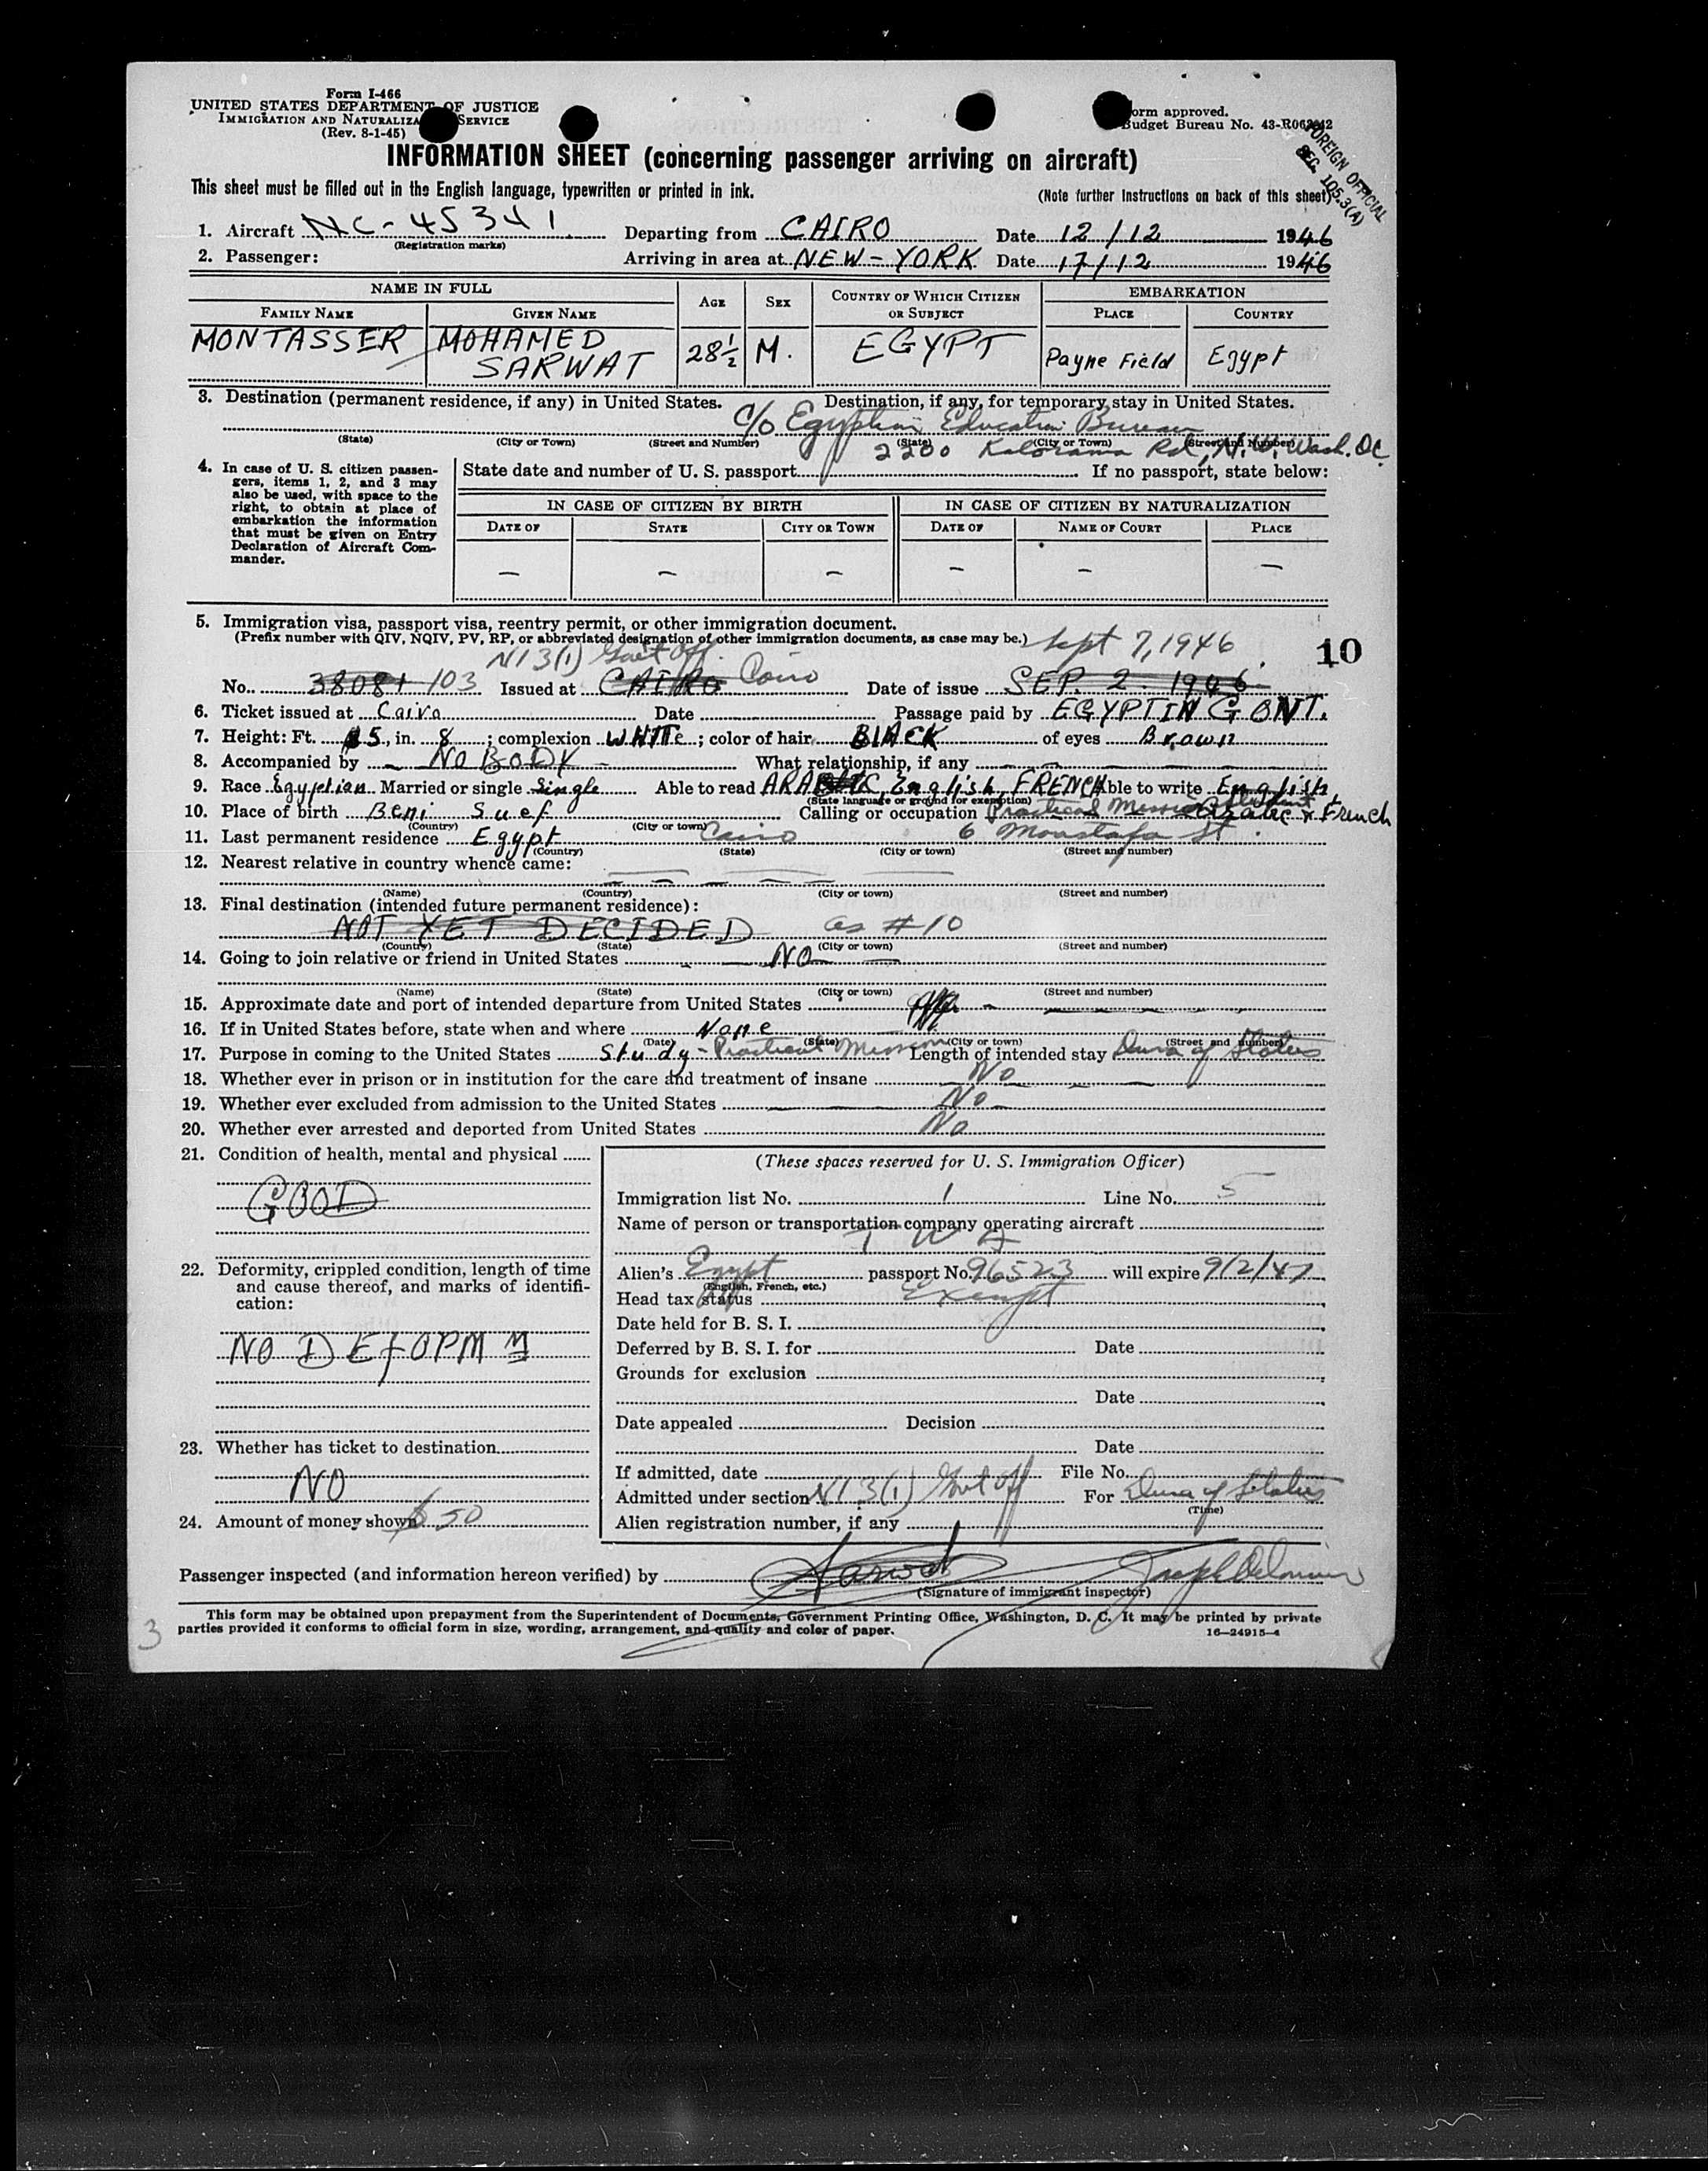 Form I-466
UNITED STATES DEPARTMENT OF JUSTICE
IMMIGRATION AND NATURALIZA SERVICE
(Rev. 8-1-45)
orm approved.
Budget Bureau No. 43-R063
FOREIGN OFFICIAL
SEC. 105.3(A)
INFORMATION SHEET (concerning passenger arriving on aircraft)
This sheet must be filled out in the English language, typewritten or printed in ink. (Note further instructions on back of this sheet)
1. Aircraft NC-45341 Departing from CAIRO Date 12/12 1946
(Registration marks)
2. Passenger: Arriving in area at NEW-YORK Date 17/12 1946
NAME IN FULL AGE SEX COUNTRY OF WHICH CITIZEN OR SUBJECT EMBARKATION
FAMILY NAME GIVEN NAME PLACE COUNTRY
MONTASSER MOHAMED SARWAT 28½ M. EGYPT Payne Field Egypt
3. Destination (permanent residence, if any) in United States. Destination, if any, for temporary stay in United States.
c/o Egyptian Education Bureau
(State) (City or Town) (Street and Number) (State) (City or Town) (Street and Number)
2200 Kalorama Rd, N.W. Wash. DC.
4. In case of U. S. citizen passengers, items 1, 2, and 3 may also be used, with space to the right, to obtain at place of embarkation the information that must be given on Entry Declaration of Aircraft Commander.
State date and number of U. S. passport If no passport, state below:
IN CASE OF CITIZEN BY BIRTH IN CASE OF CITIZEN BY NATURALIZATION
DATE OF STATE CITY OR TOWN DATE OF NAME OF COURT PLACE
– – – – – –
5. Immigration visa, passport visa, reentry permit, or other immigration document.
(Prefix number with QIV, NQIV, PV, RP, or abbreviated designation of other immigration documents, as case may be.) Sept 7, 1946
10
NI 3(1) Govt Off.
No. 38081 103 Issued at CAIRO Cairo Date of issue SEP. 2. 1946
6. Ticket issued at Cairo Date Passage paid by EGYPTIN GONT.
7. Height: Ft. 5, in. 8; complexion WHITe; color of hair BlACK of eyes Brown
8. Accompanied by – NOBODY – What relationship, if any – – –
9. Race Egyptian Married or single Single Able to read ARABIC, English, FRENCH Able to write English
(State language or ground for exemption)
Arabic & French
10. Place of birth Beni Suef Calling or occupation Practical Mission Student
(Country) (City or town)
11. Last permanent residence Egypt Cairo 6 Moustafa St.
(Country) (State) (City or town) (Street and number)
12. Nearest relative in country whence came:
– – – – –
(Name) (Country) (City or town) (Street and number)
13. Final destination (intended future permanent residence):
NOT YET DECIDED as #10
(Country) (State) (City or town) (Street and number)
14. Going to join relative or friend in United States – NO –
(Name) (State) (City or town) (Street and number)
15. Approximate date and port of intended departure from United States
16. If in United States before, state when and where None
(Date) (State) (City or town) (Street and number)
17. Purpose in coming to the United States Study - Practical Mission Length of intended stay Dura of Status
18. Whether ever in prison or in institution for the care and treatment of insane No
19. Whether ever excluded from admission to the United States No
20. Whether ever arrested and deported from United States No
21. Condition of health, mental and physical
GOOD
22. Deformity, crippled condition, length of time and cause thereof, and marks of identification:
NO DEfOPM
23. Whether has ticket to destination
NO
24. Amount of money shown $50
(These spaces reserved for U. S. Immigration Officer)
Immigration list No. 1 Line No. 5
Name of person or transportation company operating aircraft
T W A
Alien's Egypt passport No. 96523 will expire 9/2/47
(English, French, etc.)
Head tax status Exempt
Date held for B. S. I.
Deferred by B. S. I. for Date
Grounds for exclusion
Date
Date appealed Decision
Date
If admitted, date File No.
Admitted under section NI 3(1) Govt Off For Dura of Status
(Time)
Alien registration number, if any
Passenger inspected (and information hereon verified) by Sarwat
(Signature of immigrant inspector)
This form may be obtained upon prepayment from the Superintendent of Documents, Government Printing Office, Washington, D. C. It may be printed by private
parties provided it conforms to official form in size, wording, arrangement, and quality and color of paper. 16—24915-4
3